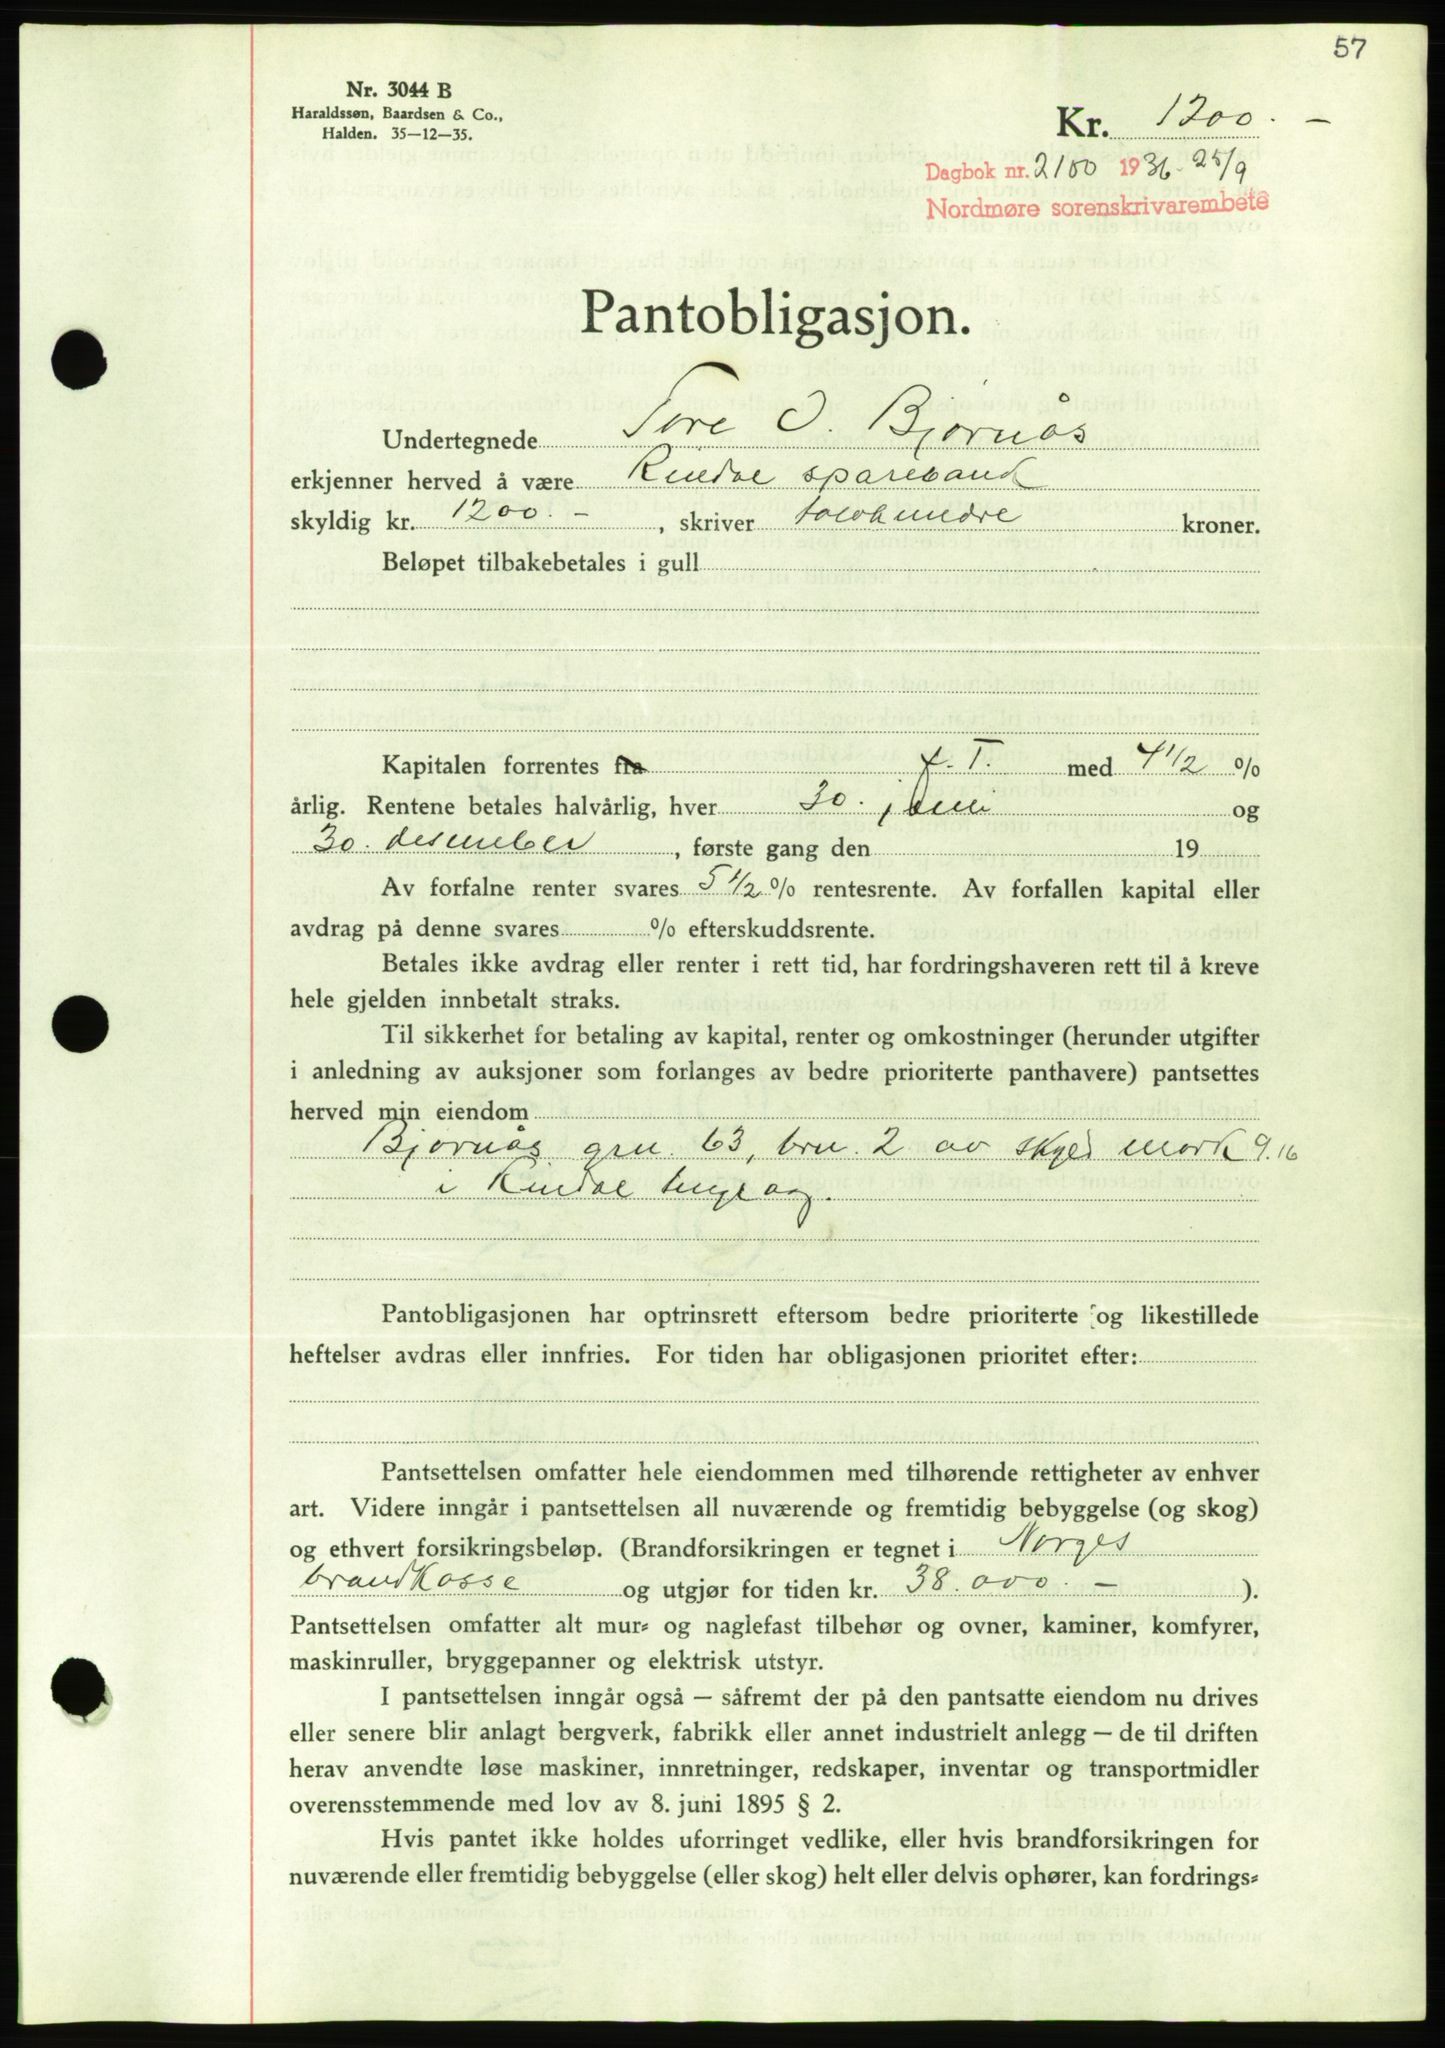 57
Nr. 3044 B
Haraldssøn, Baardsen & Co.,
Halden. 35—12—35.
Kr. 1200. -
Dagbok nr. 2100 1936 - 25/9
Nordmøre sorenskrivarembete
Pantobligasjon.
Undertegnede Tore O. Bjørnås
erkjenner herved å være Rindal sparebank
skyldig kr. 1200. - , skriver tolvhundre kroner.
Beløpet tilbakebetales i gull
Kapitalen forrentes fra f. T. med 4 1/2 %
årlig. Rentene betales halvårlig, hver 30. juni og
30. desember , første gang den 19
Av forfalne renter svares 5 1/2 % rentesrente. Av forfallen kapital eller
avdrag på denne svares % efterskuddsrente.
Betales ikke avdrag eller renter i rett tid, har fordringshaveren rett til å kreve
hele gjelden innbetalt straks.
Til sikkerhet for betaling av kapital, renter og omkostninger (herunder utgifter
i anledning av auksjoner som forlanges av bedre prioriterte panthavere) pantsettes
herved min eiendom
Bjørnås gnr. 63, bnr. 2 av skyld mark 9.16
i Rindal tinglag.
Pantobligasjonen har optrinsrett eftersom bedre prioriterte og likestillede
heftelser avdras eller innfries. For tiden har obligasjonen prioritet efter:
Pantsettelsen omfatter hele eiendommen med tilhørende rettigheter av enhver
art. Videre inngår i pantsettelsen all nuværende og fremtidig bebyggelse (og skog)
og ethvert forsikringsbeløp. (Brandforsikringen er tegnet i Norges
brandkasse og utgjør for tiden kr. 38.000. - ).
Pantsettelsen omfatter alt mur- og naglefast tilbehør og ovner, kaminer, komfyrer,
maskinruller, bryggepanner og elektrisk utstyr.
I pantsettelsen inngår også — såfremt der på den pantsatte eiendom nu drives
eller senere blir anlagt bergverk, fabrikk eller annet industrielt anlegg — de til driften
herav anvendte løse maskiner, innretninger, redskaper, inventar og transportmidler
overensstemmende med lov av 8. juni 1895 § 2.
Hvis pantet ikke holdes uforringet vedlike, eller hvis brandforsikringen for
nuværende eller fremtidig bebyggelse (eller skog) helt eller delvis ophører, kan fordrings-